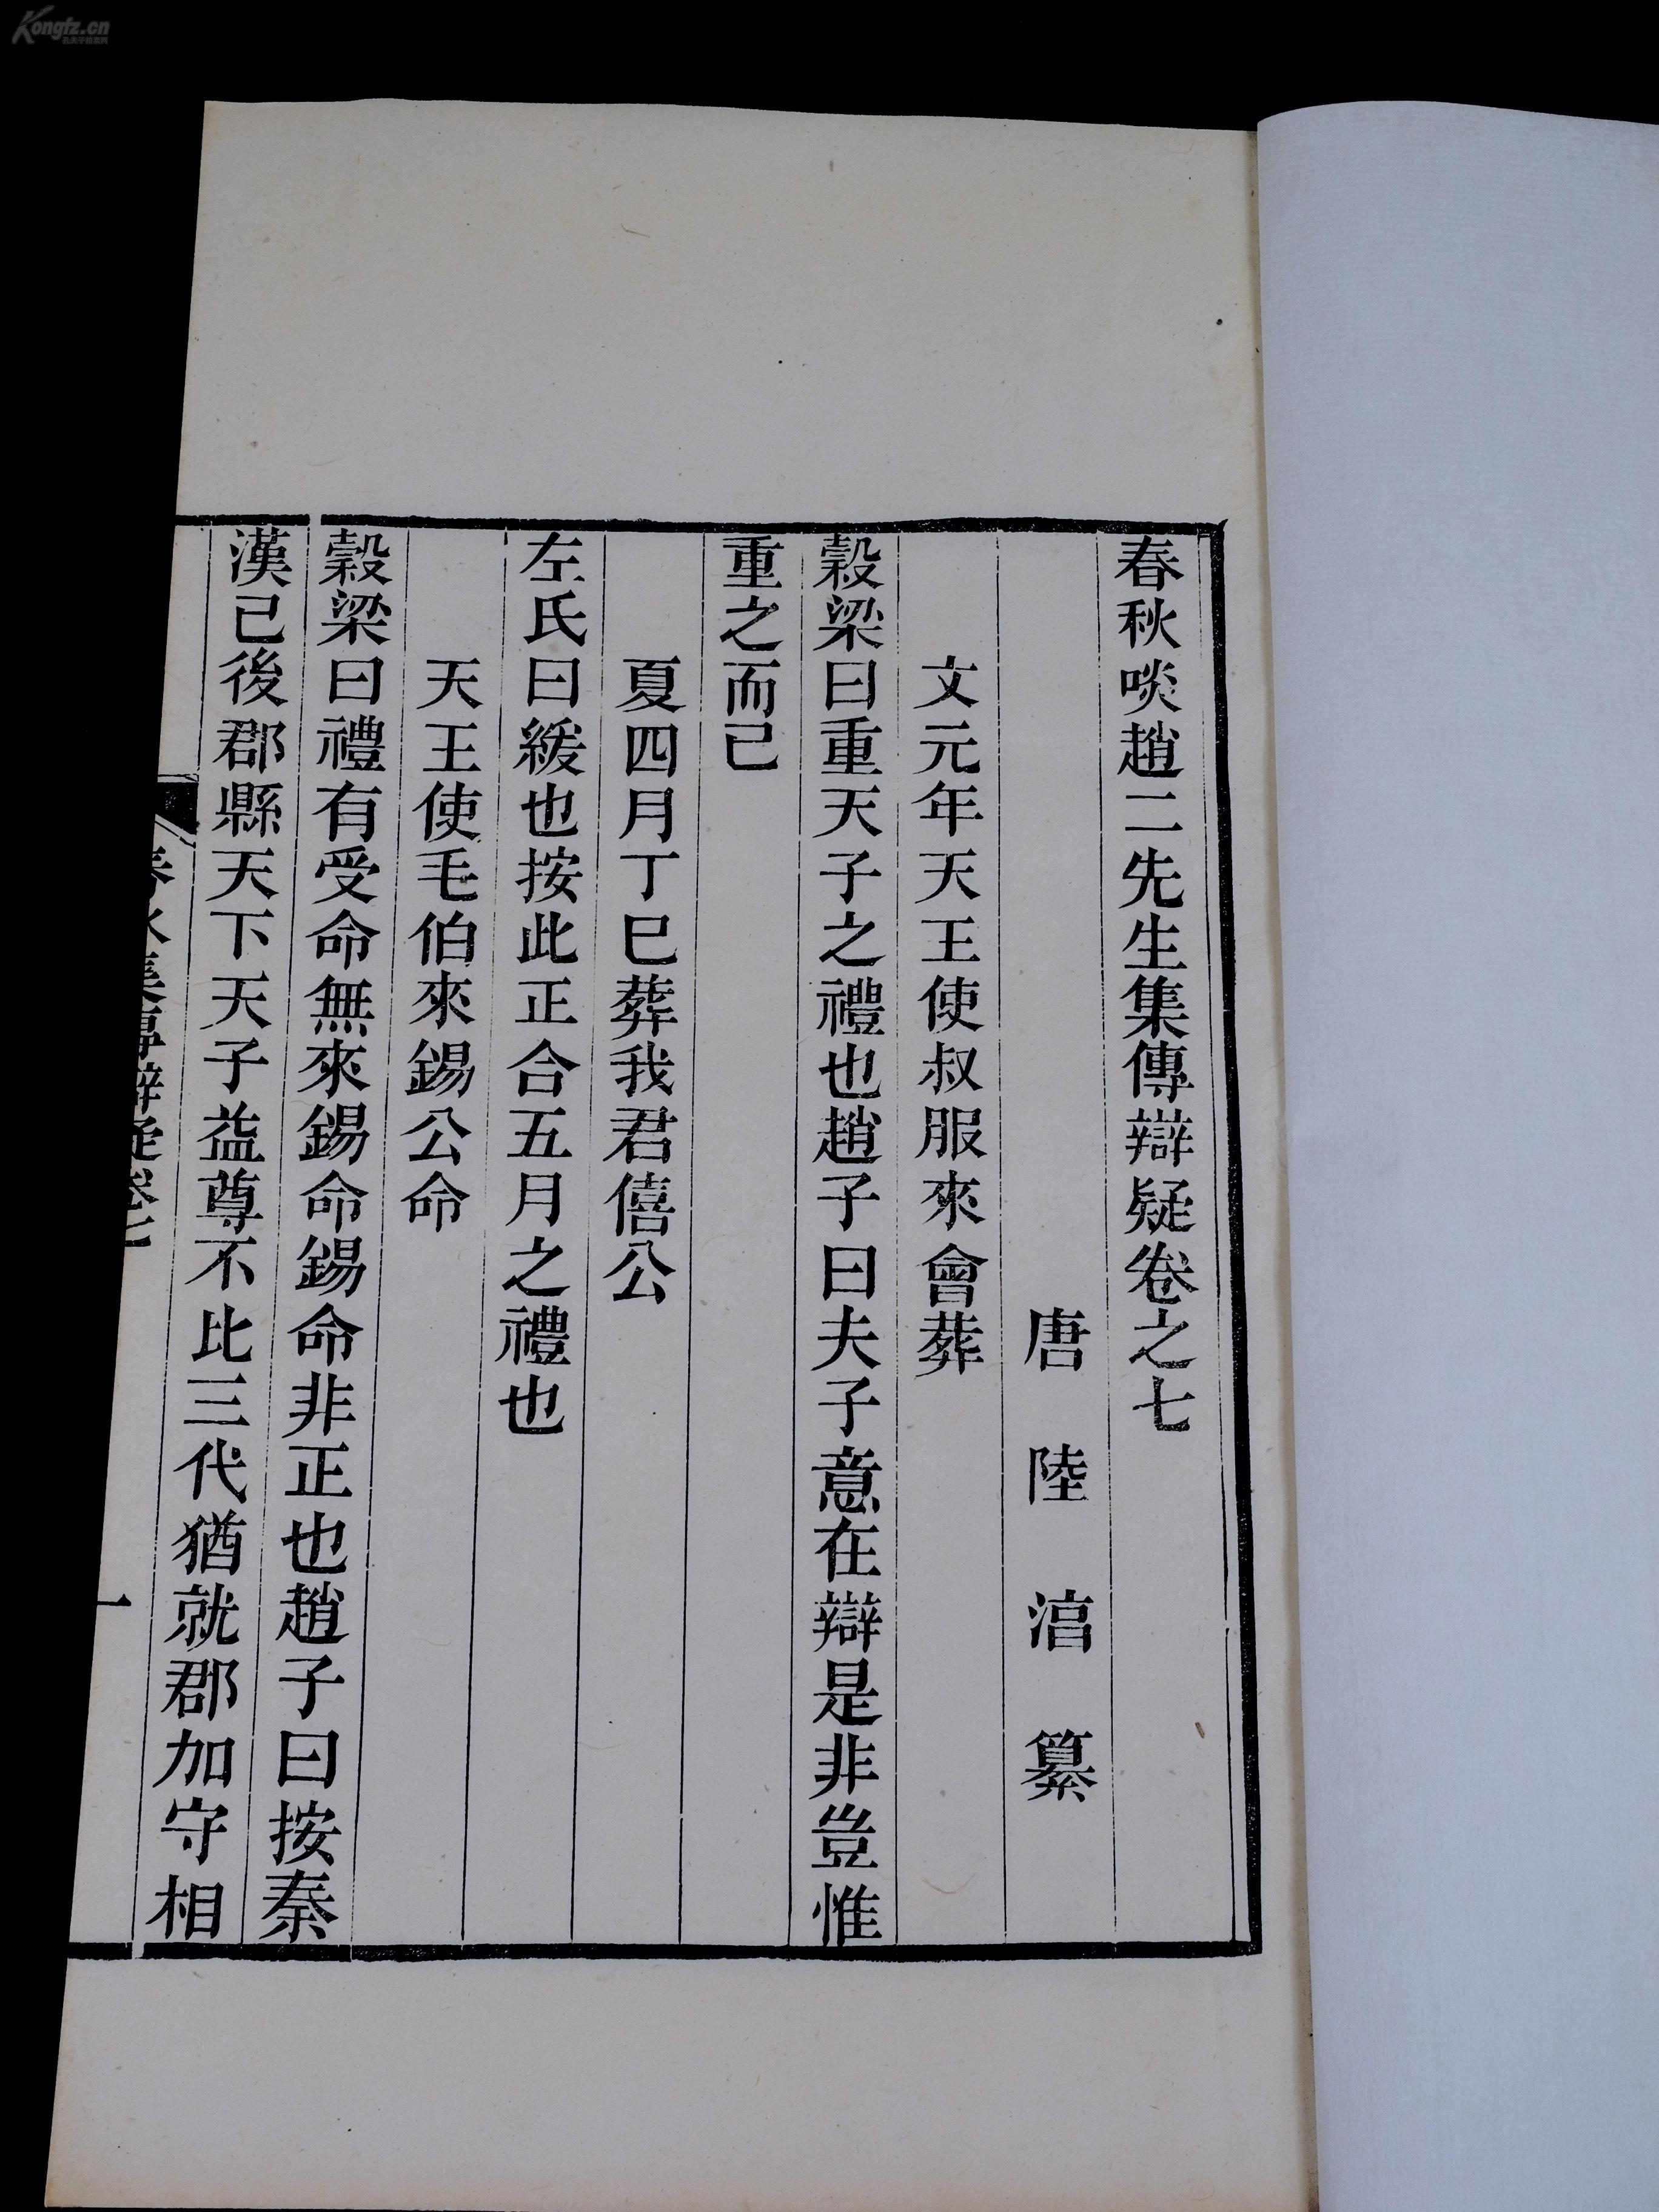 春秋啖趙二先生集傳辯疑卷之七
唐陸淳纂
文元年天王使叔服來會葬
穀梁曰重天子之禮也趙子曰夫子意在辯是非豈惟
重之而已
夏四月丁巳葬我君僖公
左氏曰緩也按此正合五月之禮也
天王使毛伯來錫公命
穀梁曰禮有受命無來錫命錫命非正也趙子曰按秦
漢已後郡縣天下天子益尊不比三代猶就郡加守相
春秋集傳辯疑卷七
一
Kongfz.cn